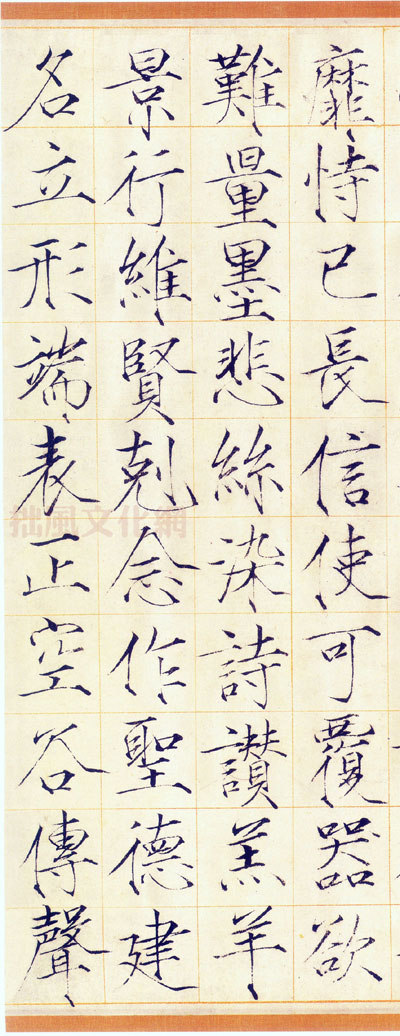 靡恃己長信使可覆器欲
難量墨悲絲染詩讃羔羊
景行維賢剋念作聖德建
名立形端表正空谷傳聲
拙風文化網